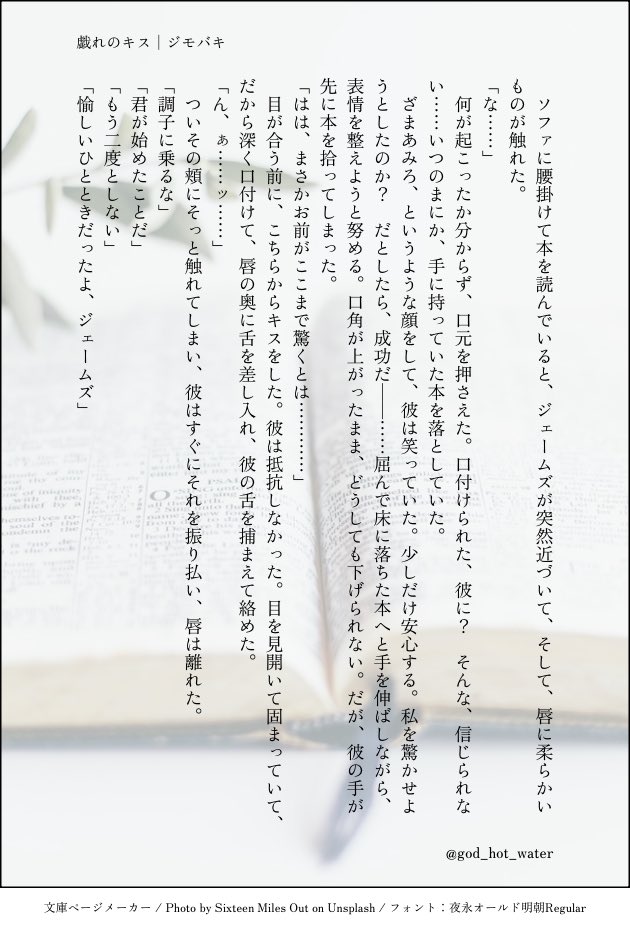 戯れのキス｜ジモバキ
　ソファに腰掛けて本を読んでいると、ジェームズが突然近づいて、そして、唇に柔らかい
ものが触れた。
「な……」
　何が起こったか分からず、口元を押さえた。口付けられた、彼に？　そんな、信じられな
い……いつのまにか、手に持っていた本を落としていた。
　ざまあみろ、というような顔をして、彼は笑っていた。少しだけ安心する。私を驚かせよ
うとしたのか？　だとしたら、成功だ――……屈んで床に落ちた本へと手を伸ばしながら、
表情を整えようと努める。口角が上がったまま、どうしても下げられない。だが、彼の手が
先に本を拾ってしまった。
「はは、まさかお前がここまで驚くとは…………」
　目が合う前に、こちらからキスをした。彼は抵抗しなかった。目を見開いて固まっていて、
だから深く口付けて、唇の奥に舌を差し入れ、彼の舌を捕まえて絡めた。
「ん、ぁ……ッ……」
　ついその頬にそっと触れてしまい、彼はすぐにそれを振り払い、唇は離れた。
「調子に乗るな」
「君が始めたことだ」
「もう二度としない」
「愉しいひとときだったよ、ジェームズ」
@god_hot_water
文庫ページメーカー / Photo by Sixteen Miles Out on Unsplash / フォント：夜永オールド明朝Regular